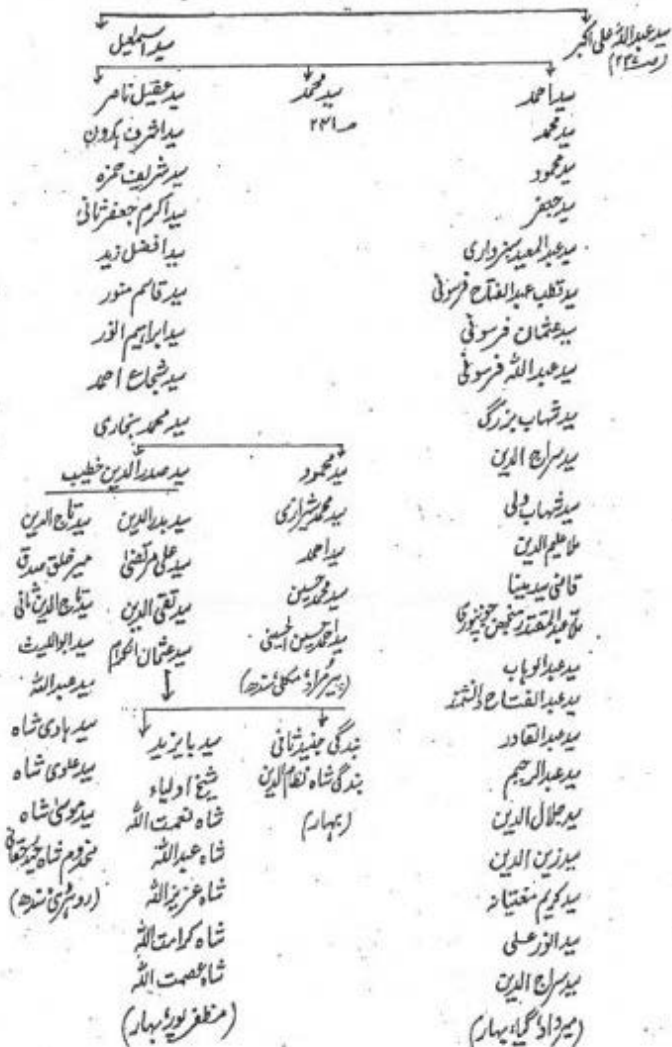 سید عبداللہ علی اکبر
(صـ ۲۳۷)
سید اسمعیل
سید احمد
سید محمد
سید محمود
سید جعفر
سید عبدالمعید سبزواری
سید قطب عبدالفتاح فرسوئی
سید عثمان فرسوئی
سید عبداللہ فرسوئی
سید شہاب بزرگ
سید سراج الدین
سید شہاب ولی
ملا علیم الدین
قاضی سید مینا
ملا عبدالمقتدر منجھن جونپوری
سید عبدالوہاب
سید عبدالفتاح دانشمند
سید عبدالقادر
سید عبدالرحیم
سید جلال الدین
سید زین الدین
سید کریم
سید انور علی
سید سراج الدین
(میرداد، گیا، بہار)
سید محمد
صـ ۲۳۱
سید عقیل ناصر
سید اشرف ہارون
سید شریف حمزہ
سید اکرم جعفر ثانی
سید افضل زید
سید قاسم منور
سید ابراہیم انور
سید شجاع احمد
سید محمد بخاری
سید محمود
سید محمد شیرازی
سید احمد
سید محمد حسین
سید احمد حسین الحسینی
(پیر مراد، مکلی سندھ)
سید صدرالدین خطیب
سید بدرالدین
سید علی مرتضیٰ
سید تقی الدین
سید عثمان
بندگی جنید ثانی
بندگی شاہ نظام الدین
(بہار)
سید بایزید
شیخ اولیاء
شاہ نعمت اللہ
شاہ عبداللہ
شاہ عزیز اللہ
شاہ کرامت اللہ
شاہ عصمت اللہ
(مظفر پور، بہار)
سید تاج الدین
میر خلق صدق
سید تاج الدین ثانی
سید ابواللیث
سید عبداللہ
سید ہادی شاہ
سید علوی شاہ
سید موسیٰ شاہ
مخدوم شاہ
(روہڑی سندھ)